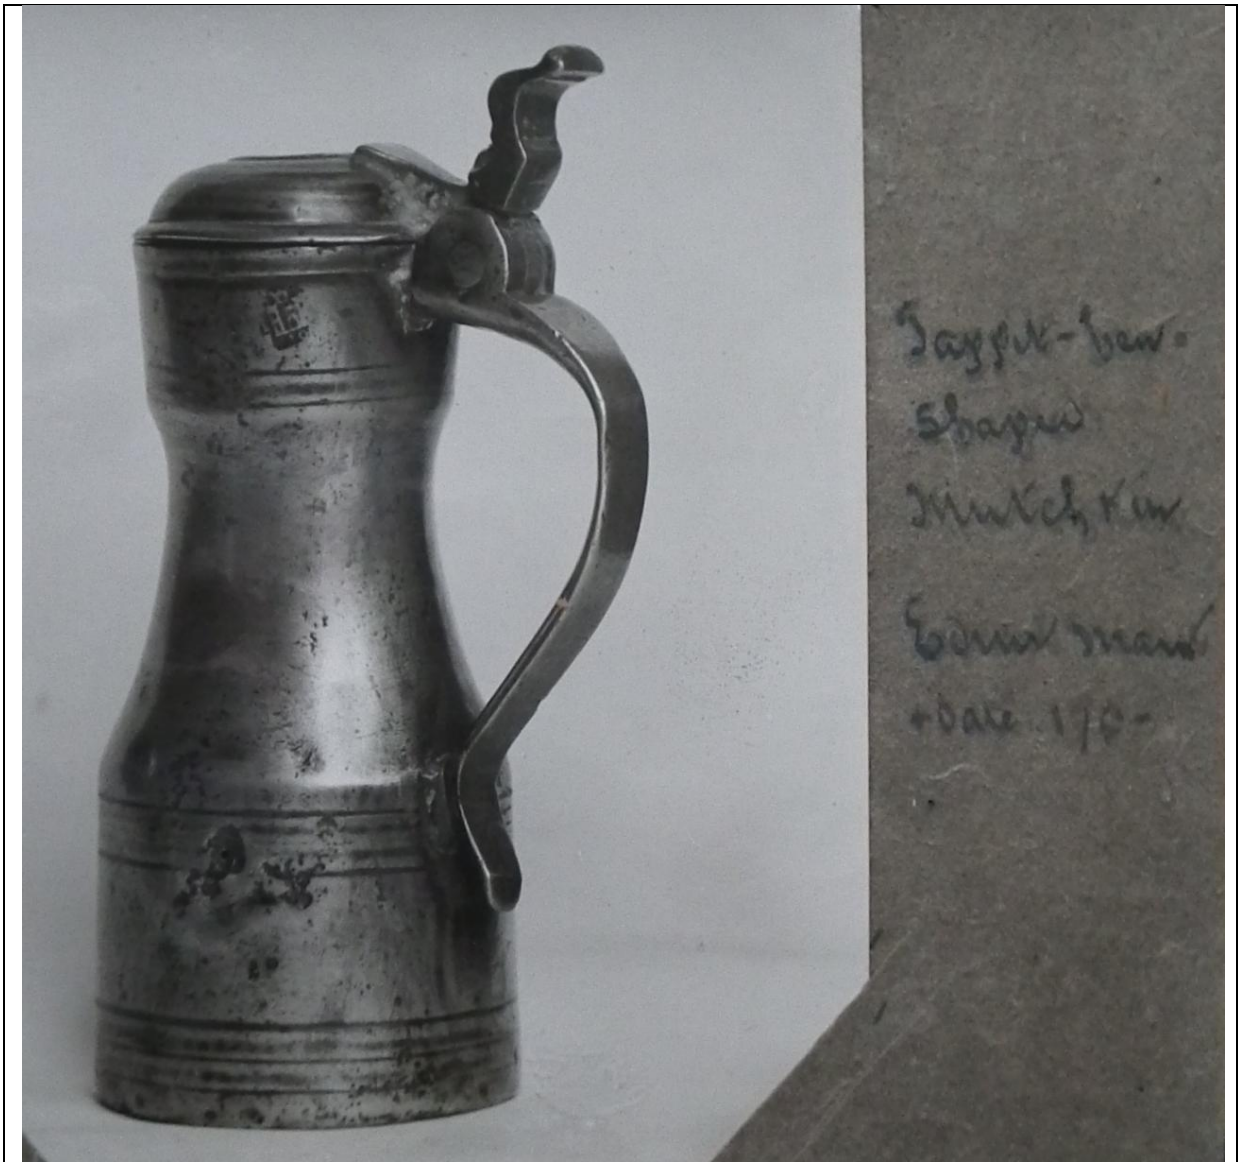 Tappit-hen-
shaped
Mutchkin
Edinr mark
+ Date 170-